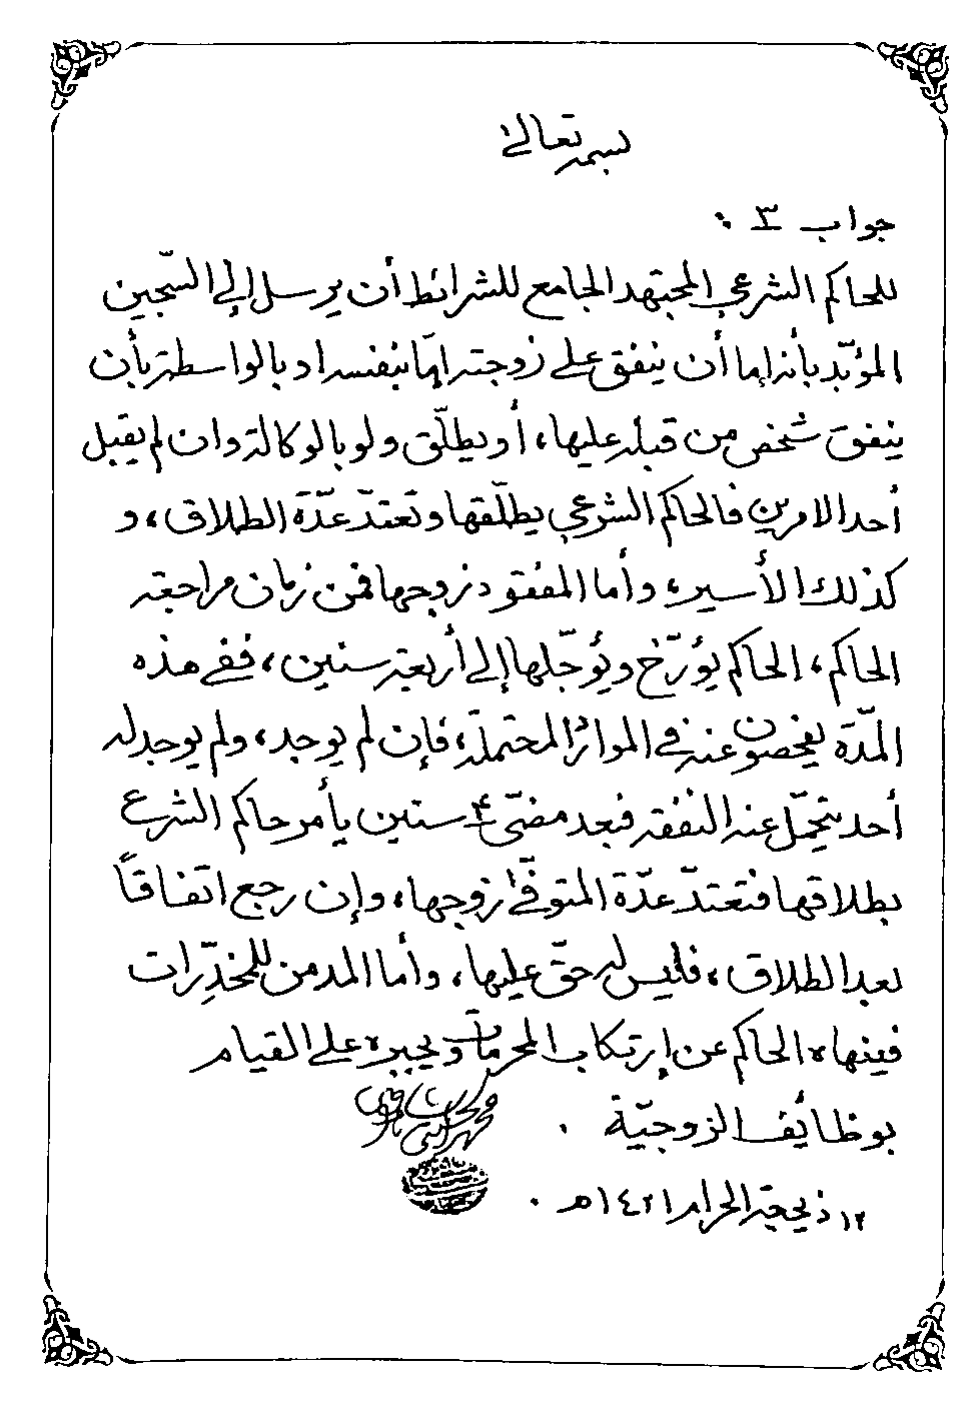 بسمه تعالى
جواب ٣ :
للحاكم الشرعي المجتهد الجامع للشرائط أن يرسل إلى السّجين
المؤبّد بأنه إما أن ينفق على زوجته إمّا بنفسه او بالواسطة بأن
ينفق شخص من قبله عليها، أو يطلّق ولو بالوكالة وان لم يقبل
أحد الامرين فالحاكم الشرعي يطلّقها وتعتدّ عدّة الطلاق، و
كذلك الأسير، وأما المفقود زوجها فمن زمان مراجعته
الحاكم، الحاكم يؤرّخ ويؤجّلها إلى أربعة سنين، ففي هذه
المدّة يفحصون عنه في الموارد المحتملة، فإن لم يوجد، ولم يوجد له
أحد يتحمّل عنه النفقه فبعد مضيّ ۴ سنين يأمر حاكم الشرع
بطلاقها فتعتدّ عدّة المتوفّى زوجها، وإن رجع اتفاقاً
بعد الطلاق، فليس له حقّ عليها، وأما المدمن للمخدّرات
فينهاه الحاكم عن إرتكاب المحرمات ويجبره على القيام
بوظائف الزوجيّة .
١٢ ذي حجة الحرام ١٤٢١هـ .